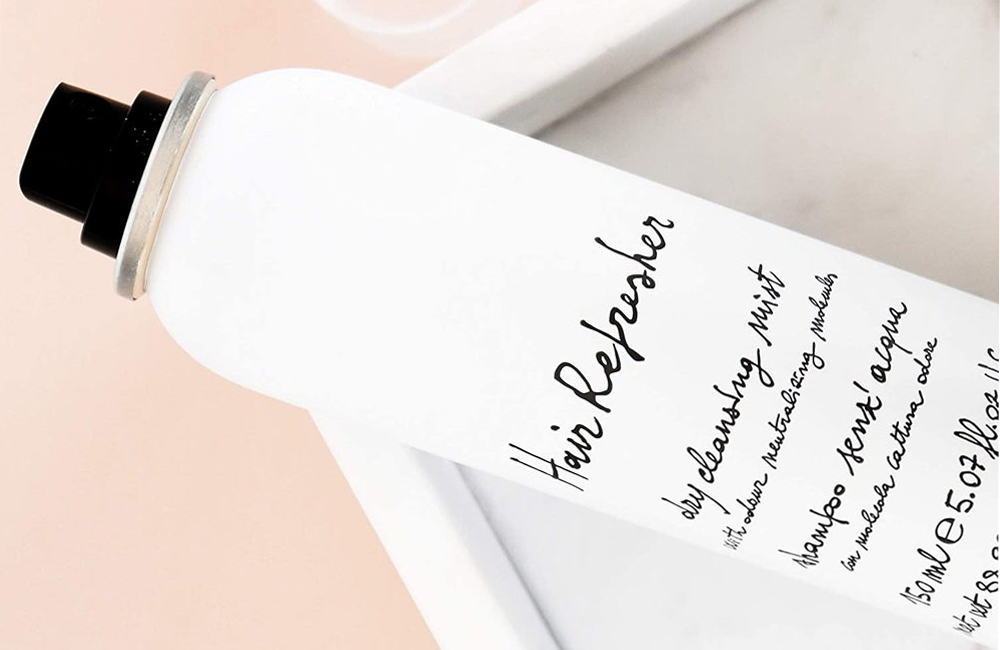 Hair Refresher
dry cleansing mist
with odour neutralising molecules
shampoo senz'acqua
con molecola cattura odore
150 ml e 5.07 fl.oz
net wt